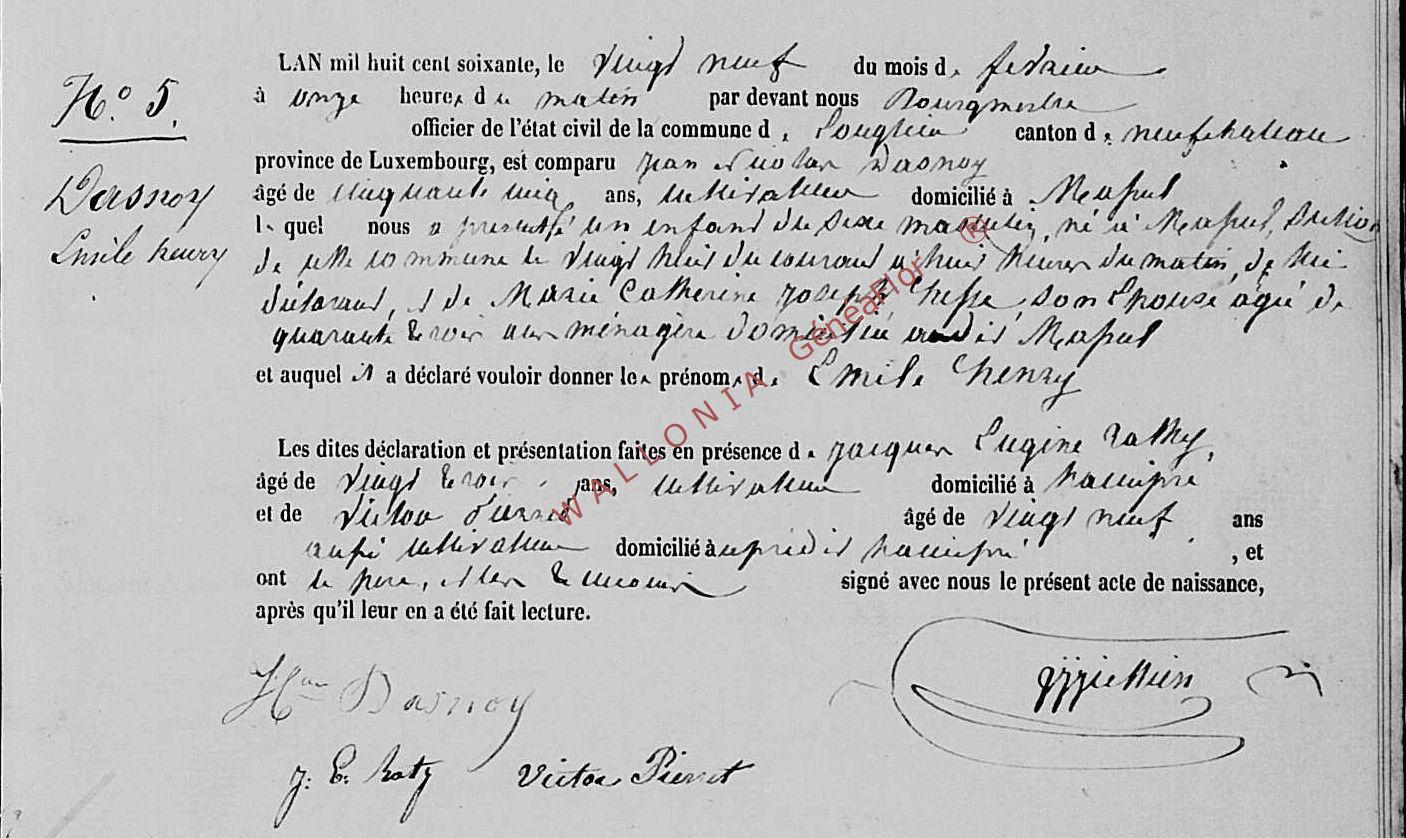 N° 5.
Dasnoy
Emile henry
LAN mil huit cent soixante, le vingt neuf du mois de fevrier
à onze heures du matin par devant nous Bourgmestre
officier de l'état civil de la commune de Longlier canton de neufchateau
province de Luxembourg, est comparu jean nicolas Dasnoy
âgé de cinquante cinq ans, cultivateur domicilié à Massul
lequel nous a presenté un enfant du sexe masculin, né à Massul, section
de cette commune le vingt huit du courant à huit heures du matin, de lui
déclarant, et de Marie Catherine joseph son épouse âgée de
quarante trois ans ménagère domiciliée audit Massul
et auquel il a déclaré vouloir donner les prénoms de Emile henry
Les dites déclaration et présentation faites en présence de jacques Eugine Rathy,
âgé de vingt trois ans, cultivateur domicilié à hamipré
et de Victor Pierret âgé de vingt neuf ans
aussi cultivateur domicilié à hamipré, et
ont le pere, et les temoins signé avec nous le présent acte de naissance,
après qu'il leur en a été fait lecture.
Dasnoy
j. E. Raty Victor Pierret
WALLONIA GénéaFlor ®